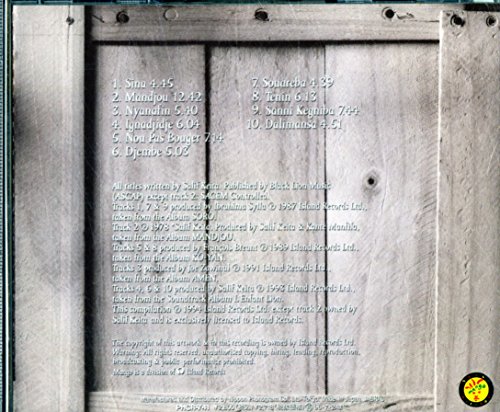 1. Sina 4.45
2. Mandjou 12.42
3. Nyanafin 5.40
4. Ignadjidje 6.04
5. Nou Pas Bouger 7.14
6. Djembe 5.03
7. Souareba 4.39
8. Tenin 6.13
9. Sanni Kegniba 7.44
10. Dalimansa 4.51
All titles written by Salif Keita. Published by Black Lion Music
(ASCAP) except track 2- SACEM Controlled.
Tracks 1, 7 & 9 produced by Ibrahima Sylla ℗ 1987 Island Records Ltd.,
taken from the Album SORO.
Track 2 ℗ 1978 Salif Keita. Produced by Salif Keita & Kante Manfila,
taken from the Album MANDJOU.
Tracks 5 & 8 produced by François Breant ℗ 1989 Island Records Ltd.,
taken from the Album KO-YAN.
Tracks 3 produced by Joe Zawinul ℗ 1991 Island Records Ltd.,
taken from the Album AMEN.
Tracks 4, 6 & 10 produced by Salif Keita ℗ 1993 Island Records Ltd.,
taken from the Soundtrack Album L'Enfant Lion.
This compilation ℗ 1994 Island Records Ltd. except track 2 owned by
Salif Keita and is exclusively licensed to Island Records.
The copyright of this artwork & in this recording is owned by Island Records Ltd.
Warning: All rights reserved, unauthorised copying, hiring, lending, reproduction,
broadcasting & public performance prohibited.
Mango is a division of Island Records
Manufactured and Distributed by Nippon Phonogram Co., Ltd., Tokyo Made in Japan